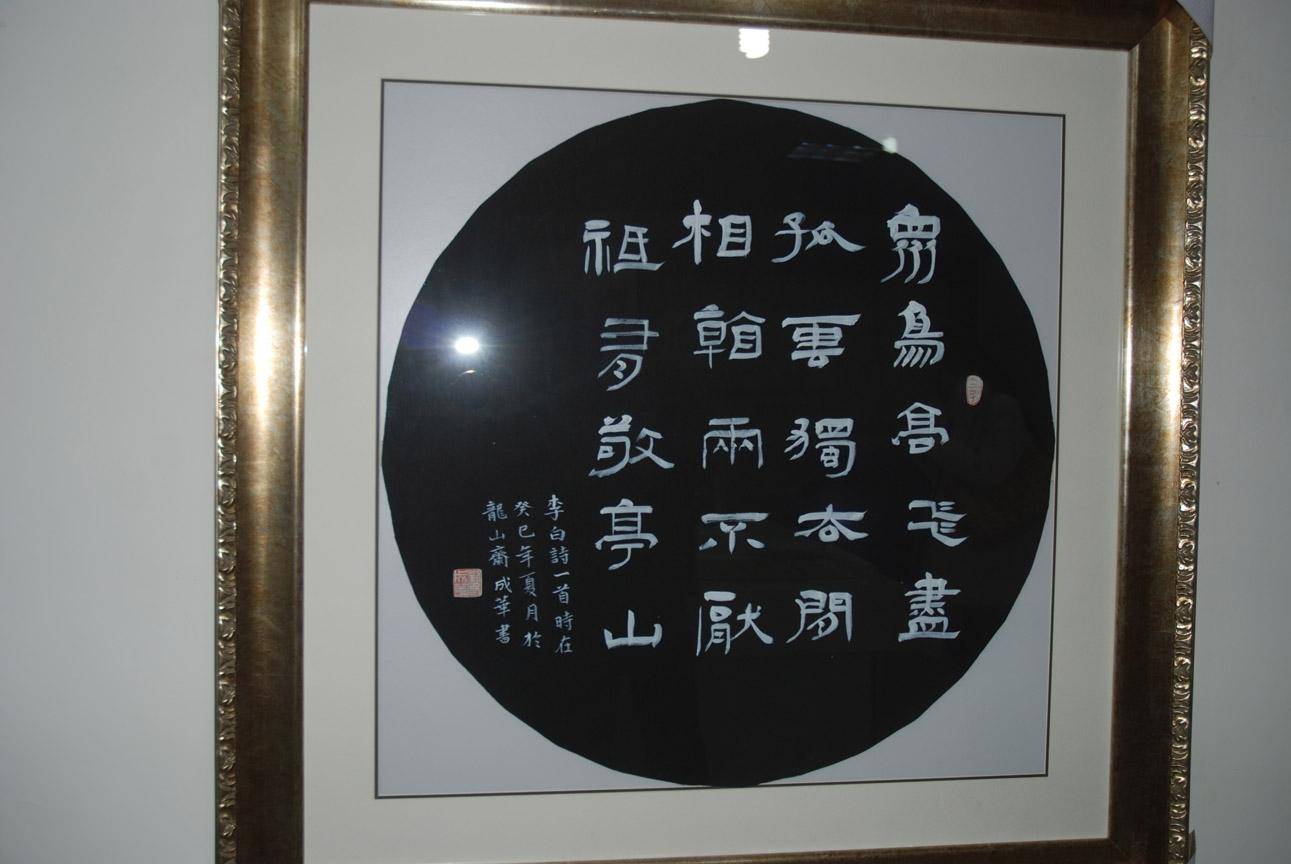 眾鳥高飛盡
孤雲獨去閒
相看兩不厭
祗有敬亭山
李白詩一首時在
癸巳年夏月於
龍山齋成華書